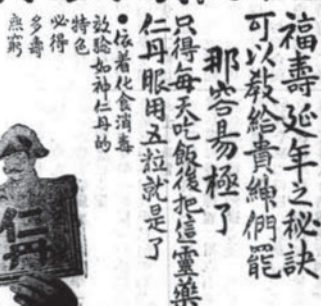 福壽延年之秘訣
可以教給貴紳們罷
那容易極了
只得每天吃飯後把這靈藥
仁丹眼用五粒就是了
●依着化食消毒
效驗如神仁丹的
特色
必得
多壽
無窮
仁丹